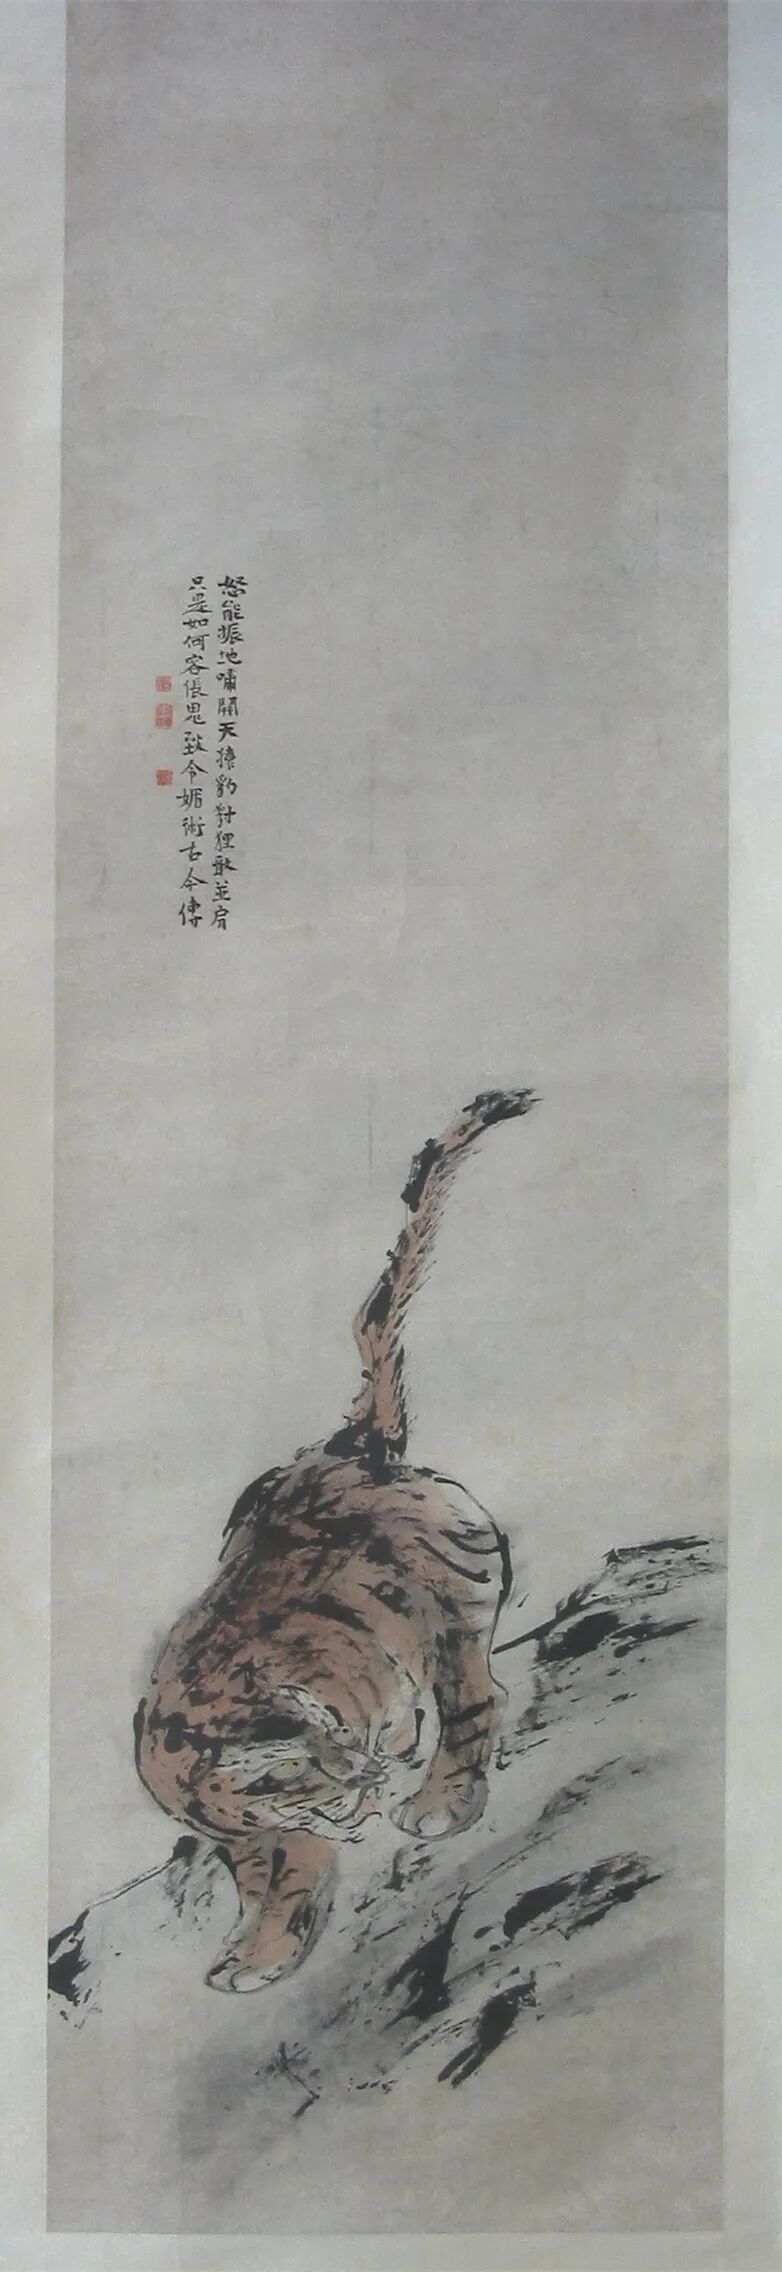 怒能振地嘯開天猿豹對狸敢並肩
只是如何容倀鬼致令媚術古今傳